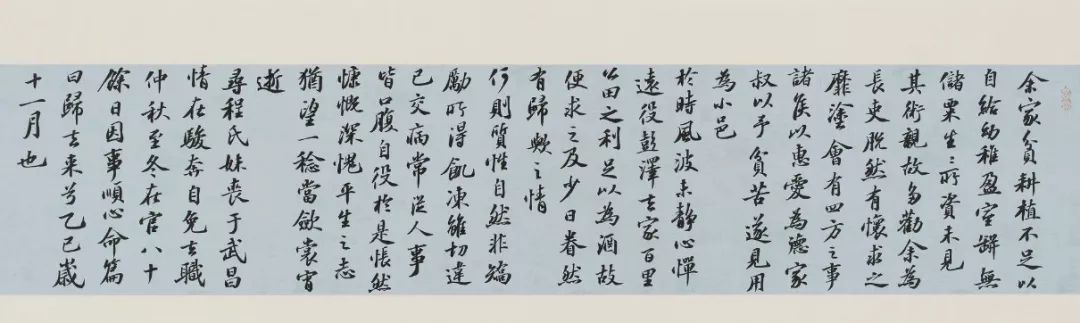 余家贫耕植不足以
自给幼稚盈室缾無
儲粟生〻所資未見
其術親故多勸余為
長吏脱然有懷求之
靡塗會有四方之事
諸侯以惠愛為德家
叔以予貧苦遂見用
為小邑
於時風波未静心憚
遠役彭澤去家百里
公田之利足以為酒故
便求之及少日眷然
有歸歟之情
何則質性自然非矯
勵所得飢凍雖切違
己交病常從人事
皆口腹自役於是悵然
慷慨深愧平生之志
猶望一稔當斂裳宵
逝
尋程氏妹喪于武昌
情在駿奔自免去職
仲秋至冬在官八十
餘日因事順心命篇
曰歸去来兮乙巳歲
十一月也